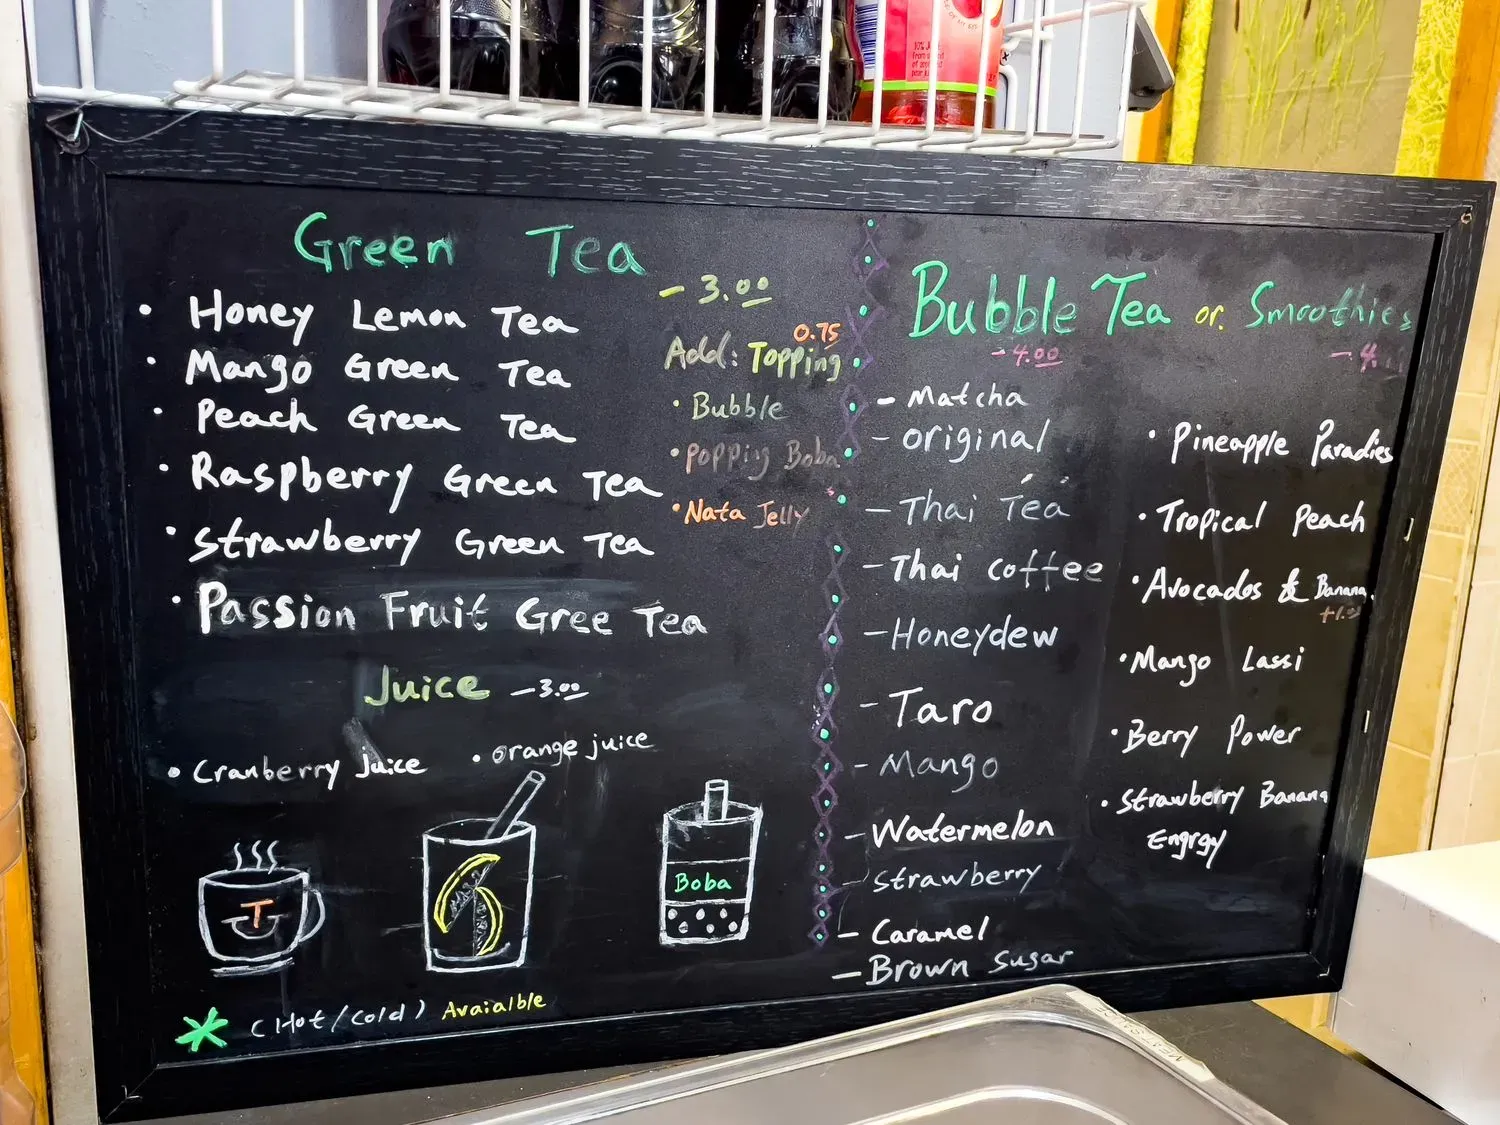 Green Tea
- 3.00
• Honey Lemon Tea
• Mango Green Tea
• Peach Green Tea
• Raspberry Green Tea
• Strawberry Green Tea
• Passion Fruit Gree Tea
0.75
Add: Topping
• Bubble
• Popping Boba
• Nata Jelly
Juice - 3.00
• Cranberry juice • orange juice
T
Boba
* (Hot/Cold) Avaialble
Bubble Tea or. Smoothies
- 4.00 - 4.
- Matcha
- original
- Thai Tea
- Thai coffee
- Honeydew
- Taro
- Mango
- Watermelon
- Strawberry
- Caramel
- Brown Sugar
• Pineapple Paradies
• Tropical Peach
• Avocados & Banana.
• Mango Lassi
• Berry Power
• Strawberry Banana
Engrgy